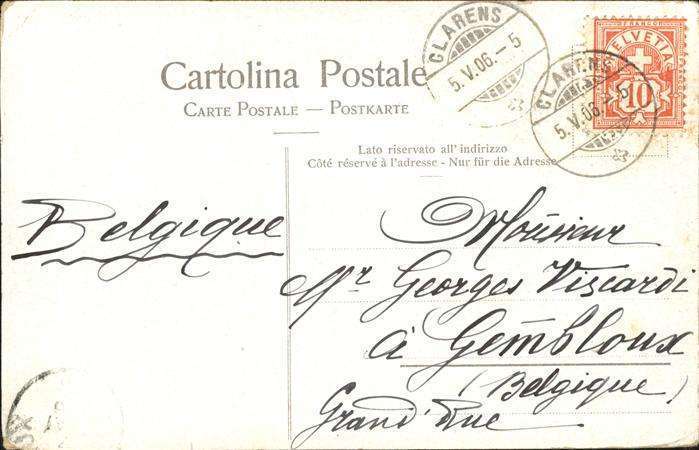 CLARENS
5.V.06.-5
CLARENS
5.V.06.-5
FRANCO
HELVETIA
10
Cartolina Postale
CARTE POSTALE — POSTKARTE
Lato riservato all'indirizzo
Côté réservé à l'adresse - Nur für die Adresse
Belgique
Monsieur
Mr Georges Viscardi
à Gembloux
(Belgique)
Grand'Rue